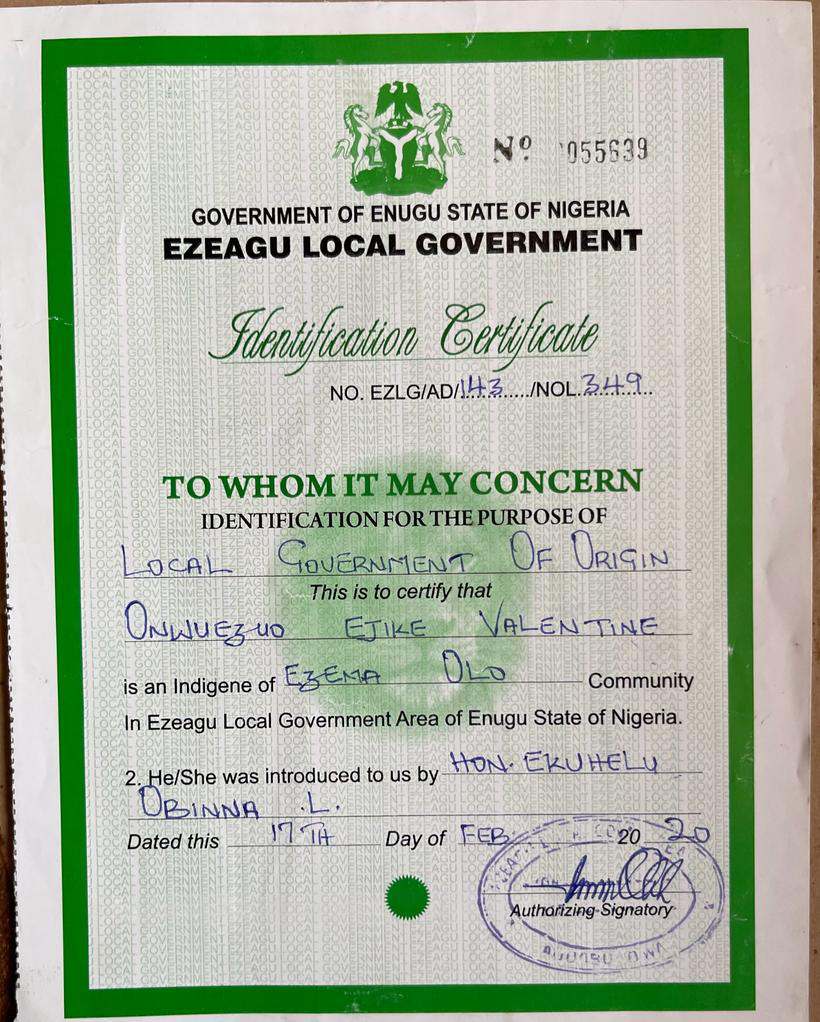 Nº 055639
GOVERNMENT OF ENUGU STATE OF NIGERIA
EZEAGU LOCAL GOVERNMENT
Identification Certificate
NO. EZLG/AD/143...../NOL.349
TO WHOM IT MAY CONCERN
IDENTIFICATION FOR THE PURPOSE OF
LOCAL GOVERNMENT OF ORIGIN
This is to certify that
ONWUEZUO EJIKE VALENTINE
is an Indigene of EZEMA OLO Community
In Ezeagu Local Government Area of Enugu State of Nigeria.
2. He/She was introduced to us by HON. EKUHELU
OBINNA .L.
Dated this 17TH Day of FEB. 20 20
Authorizing Signatory